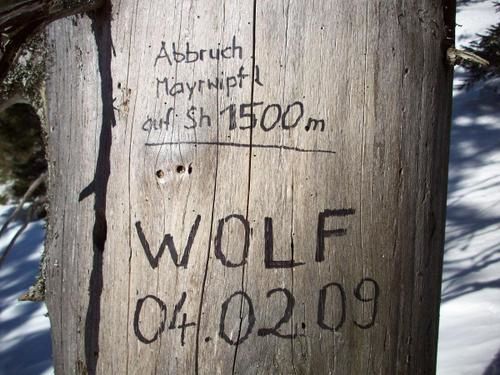 Abbruch
Mayrwipfl
auf Sh 1500m
WOLF
04.02.09